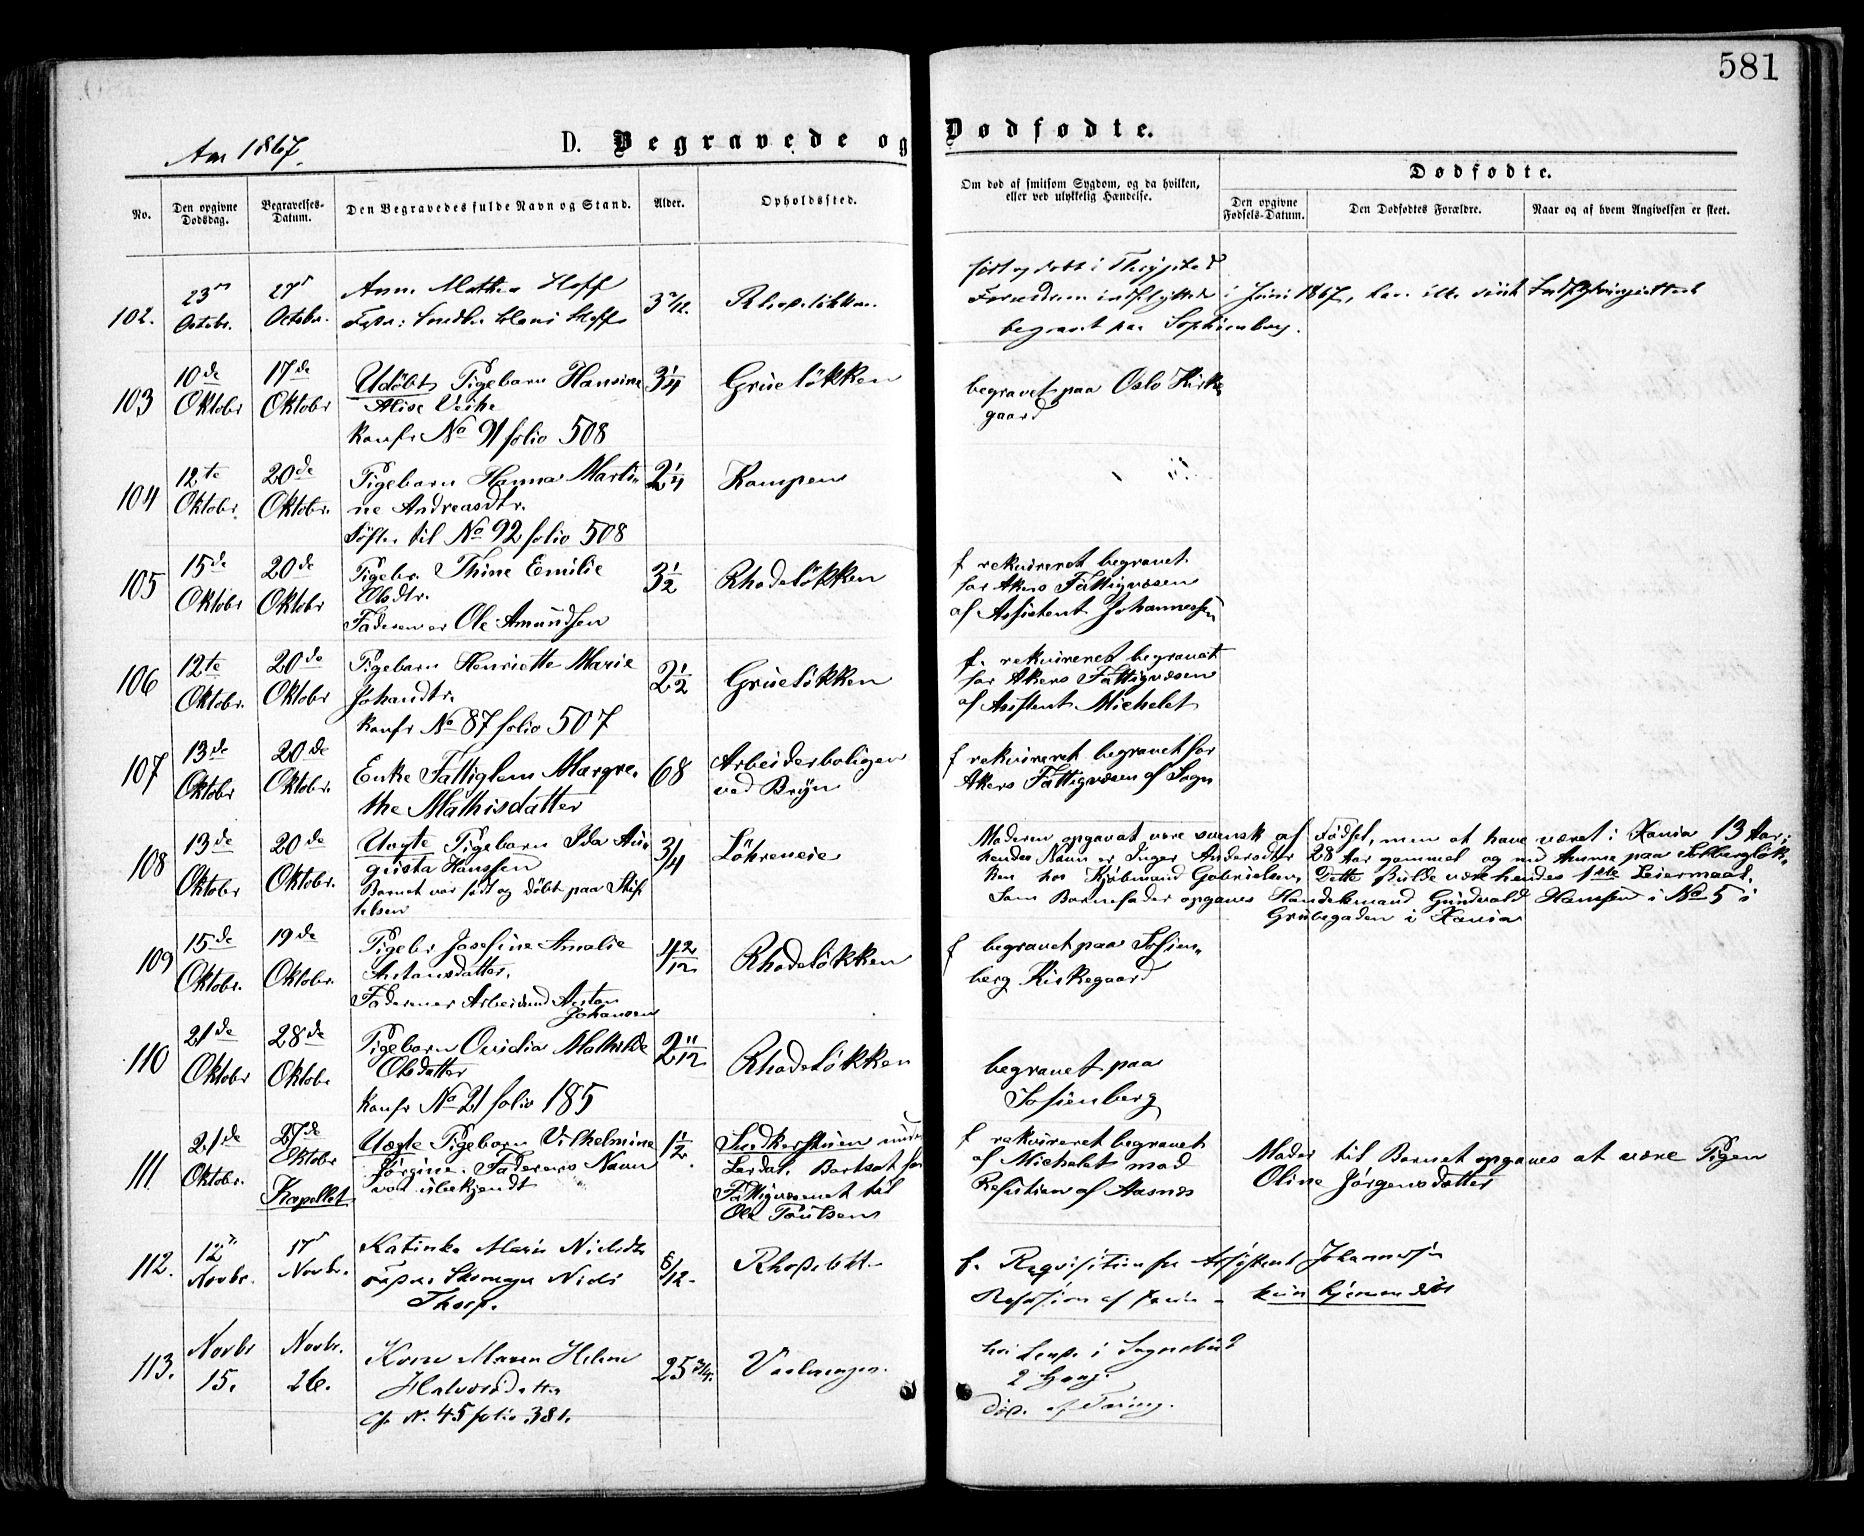 581
Aar 1867.
D. Begravede og Dødfødte.
No.
Den opgivne Dødsdag.
Begravelses-Datum.
Den Begravedes fulde Navn og Stand.
Alder.
Opholdssted.
Om død af smitsom Sygdom, og da hvilken,
eller ved ulykkelig Hændelse.
Dødfødte.
Den opgivne Fødsels-Datum.
Den Dødfødtes Forældre.
Naar og af hvem Angivelsen er skeet.
102.
23
Octobr.
27
Octobr.
Anne Mathea Hoff
Hans Hoff
3 2/12.
født og døbt i
i Juni 1867, har ikke
begravet paa Sophienberg.
103
10de
Oktobr
17de
Oktobr
Udöbt Pigebarn Hansine
Alise
konfr No 91 folio 508
3 1/4
Grüeløkken
begravet paa Oslo Kirke
gaard
104
12te
Oktobr.
20de
Oktobr.
Pigebarn Hanna Marti-
ne Andreasdtr.
Søster til No 92 folio 508
2 1/4
Kampen
105
15de
Oktobr
20de
Oktobr
Pigebr. Thine Emilie
Olsdtr.
Faderen er Ole Amundsen
3 1/2
Rhodeløkken
f rekvireret begravet
for Akers Fattigvæsen
af Assistent Johannessen
106
12te
Oktobr.
20de
Oktobr
Pigebarn Henriette Marie
Johandtr.
konfr No 87 folio 507
2 1/2
Grüeløkken
f. rekvireret begravet
for Akers Fattigvæsen
af Assistent Michelet
107
13de
Oktobr
20de
Oktobr.
Enke Fattiglem Margre-
the Mathisdatter
68
Arbeiderboligen
ved Bryn
f rekvireret begravet for
Akers Fattigvæsen af Sogn
108
13de
Oktobr
20de
Oktobr.
Uægte Pigebarn Ida Au-
gusta Hanssen
Barnet var født og döbt paa Stif
telsen
3/4
Löhreneie
Moderen opgavat være svensk af Fødsel, men at have været i Xania 13 Aar;
hendes Navn er Inger Andersdtr 28 Aar gammel og
ken hos Kjøbmand Gabrielsen, Dette skulde være hendes 1ste Leiermaal,
Som Barnefader opgaves Handelsmand Gundvald Hanssen i No 5 i
Grubegaden i Xania
109
15de
Oktobr.
19de
Oktobr.
Pigebr Josefine Amalie
Antonsdatter.
Faderen er Arbeidsmd Anton
Johansen
4 2/12
Rhodeløkken
f begravet paa Sofien-
berg Kirkegaard
110
21de
Oktobr
28de
Oktobr
Pigebarn Ovidia Mathilde
Olsdatter
konfr No 21 folio 185
2 11/12
Rhodeløkken
begravet paa
Sofienberg
111
21de
Oktobr.
27de
Oktobr
Kapellet
Uægte Pigebarn Vilhelmine
Jørgine. Faderens Navn
var ubekjendt
1 1/2.
Snedkerstuen under
Lardal. Bortsat for
Fattigvæsenet til
Ole Poulsen
f rekvireret begravet
af Michelet med
Refusion af Aasnes
Moder til Barnet opgaves at være Pigen
Oline Jørgensdatter
112.
12
Novbr.
17
Novbr.
Katinka Marie Nielsdtr
Niels
Thorp.
8/12
f. Requisition fra Assistent Johannesen
Refusion af
kun hjemmedøbt
113.
Novbr
15.
Novbr.
26.
Kone Maren Helene
Halvorsdatter
cfr N. 45 folio 381.
25 3/4.
Vaalerengen.
i Sognebud
2 Gang.
død af Tæring.